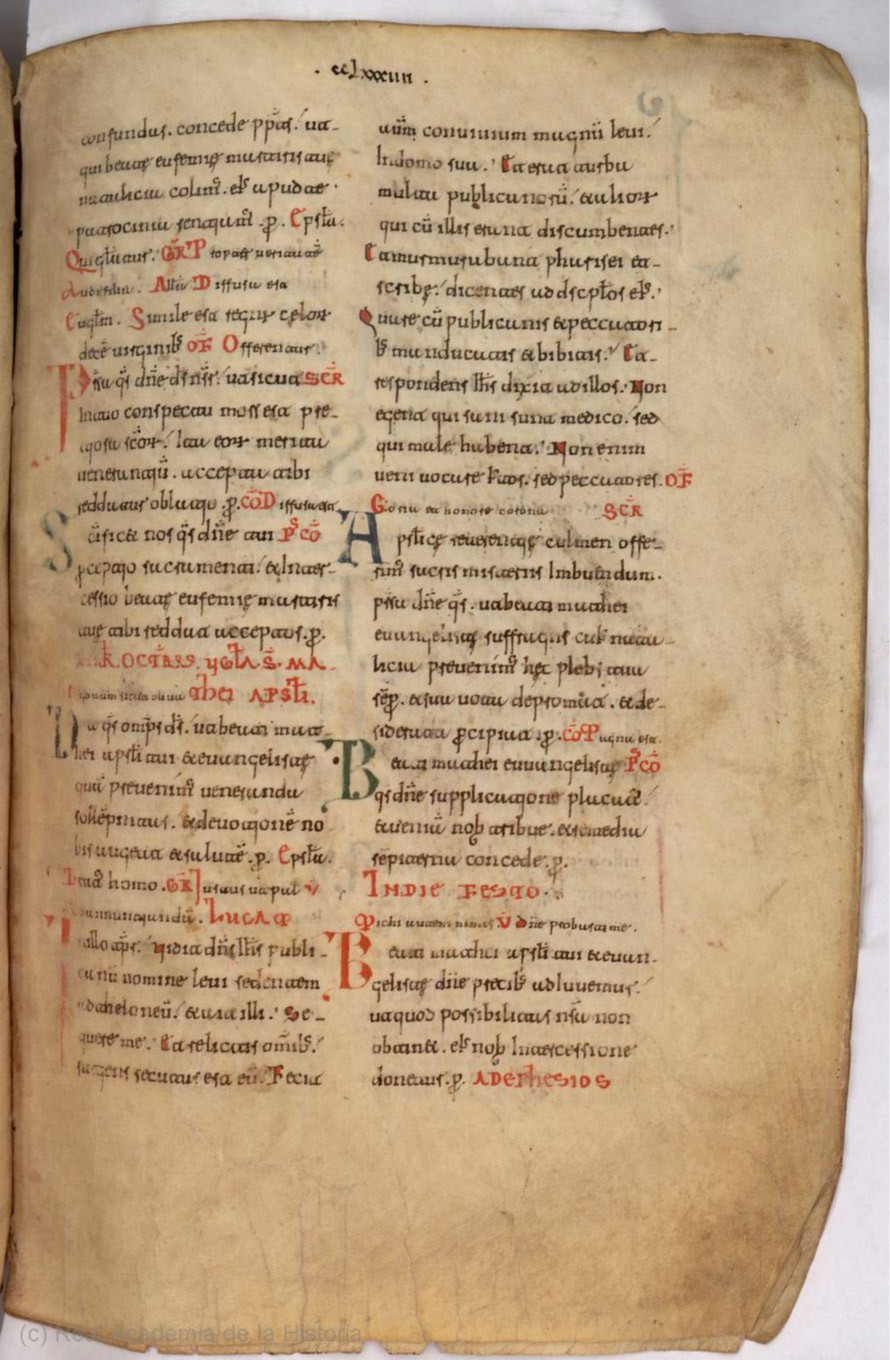 . ccLxxxuiii .
confundas. concede ppi̅as. ut
qui beate eufemie martiris tue
natalicia colim̅. et̅ apud te
patrocinia senciam̅. p̅. Epsl̅a.
Qui gl̅atur. GR̅ P
All̅a D iffusa est
Eugl̅m. Simile est regn̅ celor̅
dece̅ uirginib̅ OF̅ Offerentur.
P̅sta q̅s dn̅e ds̅ nr̅. ut sicut SCR̅
In tuo conspectu mors est pre-
tiosa sc̅or̅. Ita eor̅ merita
uenerantiu̅. accepta tibi
reddatur oblatio. p̅. CO̅ D iffusa est
S c̅ificet nos q̅s dn̅e tui P̅ CO̅
p̅cepatio sacramenti. et inter-
cessio beate eufemie martiris
tue tibi reddat acceptos. p̅.
OCTBRS. UGL̅A. S̅. MA
thei APSL̅I.
D a q̅s omp̅s ds̅. ut beati mat-
hei apsl̅i tui et euangeliste
qua̅ preuenim̅ ueneranda
solle̅pnitas. et deuotione̅ no
bis augeat et salute̅. p̅. Epsl̅a.
Beat̅ homo. GR̅ Iustus ut pal V
LUCAM
In illo tp̅r. Uidit dn̅s ih̅s publi-
canu̅ nomine leui sedentem
ad theloneu̅. et ait illi. Se-
quere me. Et relictis omib̅.
surgens secutus est eu̅. Et fecit
conuiuium magnu̅ leui.
In domo sua. Et erat turba
multa publicanoru̅. et alior̅
qui cu̅ illis erant discumbentes.
Et murmurabant pharisei et
scribe. dicentes ad discpl̅os ei̅.
Quare cu̅ publicanis et peccatori-
b̅ manducatis et bibitis. Et
respondens ih̅s dixit ad illos. Non
egent qui sani sunt medico. sed
qui male habent. Non enim
ueni uocare iustos. sed peccatores. OF̅
Gloria et honore coronasti SCR̅
A psl̅ice reuerentie culmen offe-
rim̅ sacris misteriis Imbuendum.
p̅sta dn̅e q̅s. ut beati mathei
euangeliste suffragiis cui̅ nata-
licia preuenim̅ hec plebs tua
se̅p̅. et sua uota depromat. et de-
siderata p̅cipiat. p̅. CO̅ P̅ Magna est.
B eati mathei euangeliste P̅ CO̅
q̅s dn̅e supplicatione placat̅.
et uenia̅ nob̅ tribue. et remedia
sempiterna concede. p̅.
INDIE FESTO.
Michi autem nimis V̅ Dn̅e probasti me.
B eati mathei apsl̅i tui et euan-
geliste dn̅e precib̅ adiuuemur.
ut quod possibilitas nr̅a non
obtinet. ei̅ nob̅ Intercessione
donetur. p̅. ADEPHESIOS
(c) Real Academia de la Historia